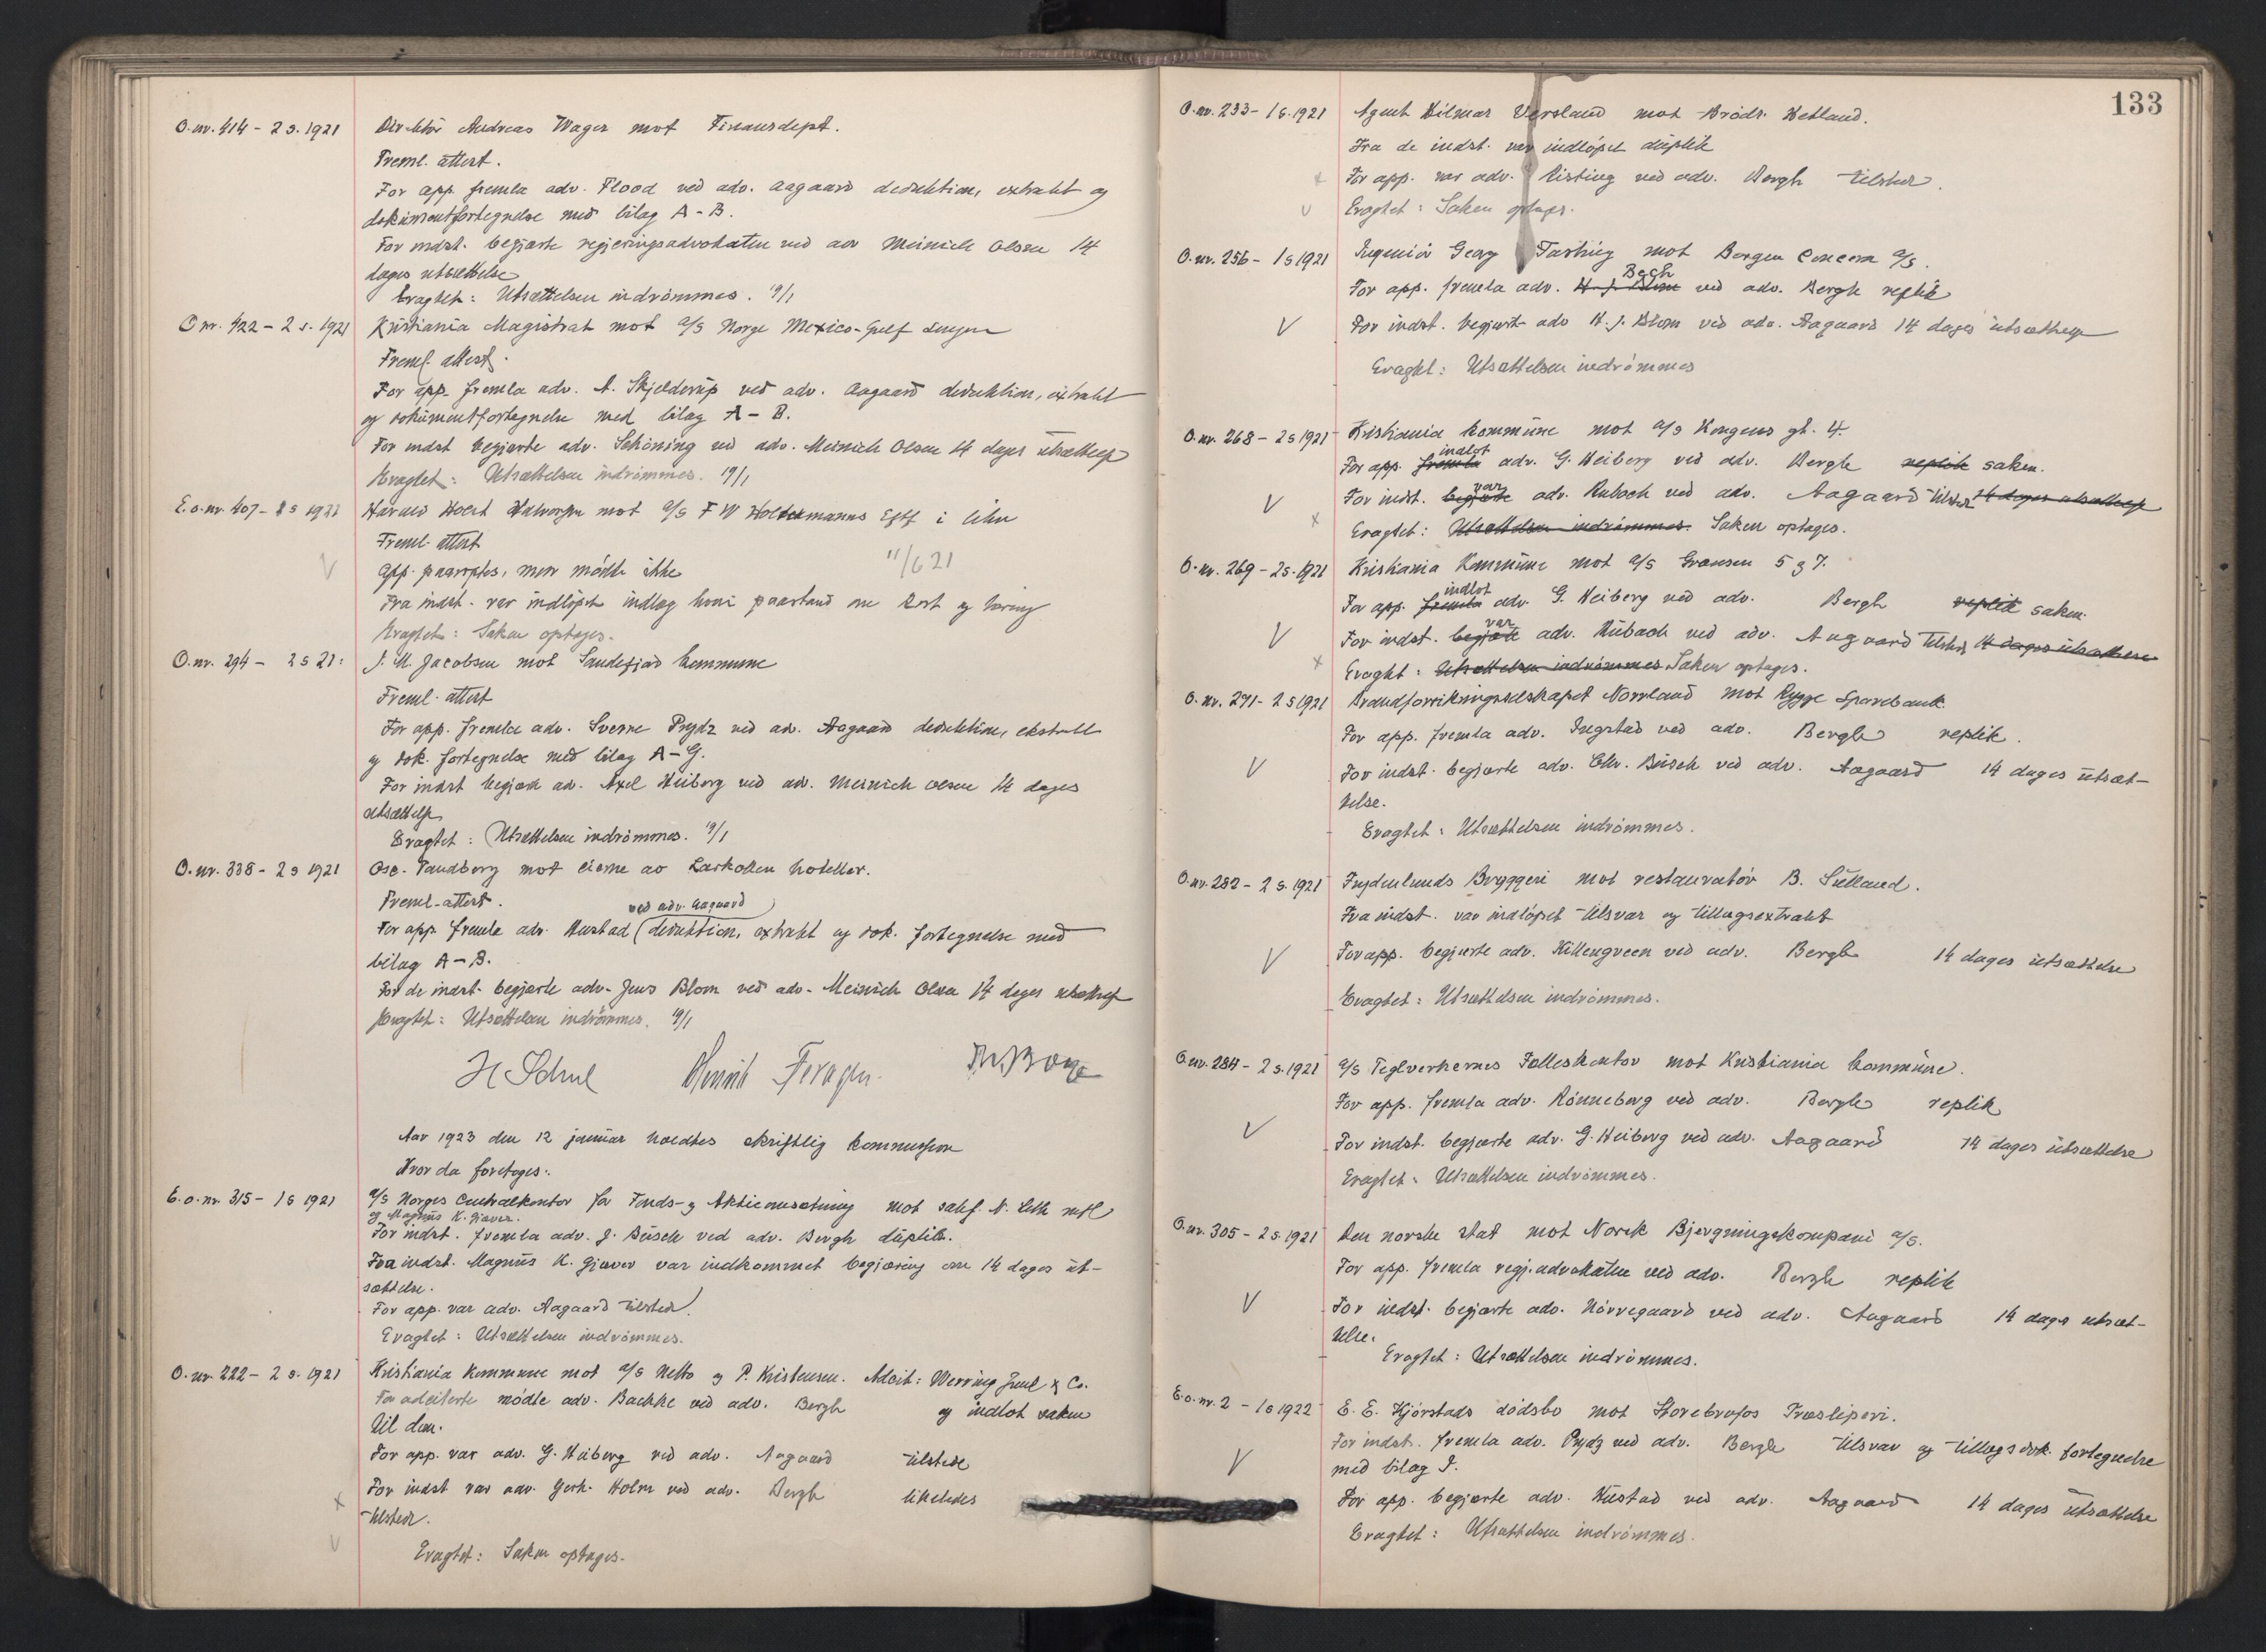 O. nr. 414 - 2 s. 1921 Direktör Andreas Wager mot Finansdept.
Freml. attest.
For app. fremla adv. Flood ved adv. Aagaard deduktion, extrakt og
dokumentfortegnelse med bilag A - B.
For indst. begjærte regjeringsadvokaten ved adv Meinich Olsen 14
dages utsættelse
Eragtet: Utsættelsen indrömmes. 19/1
O nr. 422 - 2 s. 1921 Kristiania Magistrat mot a/s Norge Mexico-Gulf Linjen
Freml. attest.
For app. fremla adv. A. Skjelderup ved adv. Aagaard deduktion, extrakt
og dokumentfortegnelse med bilag A - B.
For indst begjærte adv. Schöning ved adv. Meinich Olsen 14 dages utsættelse
Eragtet: Utsættelsen indrömmes. 19/1
E. o. nr. 407 - 2 s 1921 Harald Hoest Halvorsen mot a/s F W Holtermanns Eftf i likv
Freml. attest
App. paaroptes, men mödte ikke 11/6 21
Fra indst. var indlöpet indlæg hvori paastand om kost og tæring
Eragtet: Saken optages.
O. nr. 294 - 2 s 21: J. M. Jacobsen mot Sandefjord kommune
Freml. attest
For app. fremla adv. Sverre Prydz ved adv. Aagaard deduktion, ekstrakt
og dok. fortegnelse med bilag A - G.
For indst begjærte adv. Axel Heiberg ved adv. Meinich Olsen 14 dages
utsættelse
Eragtet: Utsættelsen indrömmes. 19/1
O. nr. 338 - 2 s 1921 Osc. Sandberg mot eierne av Larkollen hoteller.
Freml. attest.
ved adv. Aagaard
For app. fremla adv. Hustad (deduktion, extrakt og dok. fortegnelse med
bilag A - B.
For de indst. begjærte adv. Jens Blom ved adv. Meinich Olsen 14 dages utsættelse
Eragtet: Utsættelsen indrömmes. 19/1
Aar 1923 den 12 januar holdtes skriftlig kommission
Hvor da foretages:
E. o. nr. 315 - 1 s 1921 a/s Norges Centralkontor for Fonds- og Aktieomsætning mot sakf. N. Leth
og Magnus K. Giæver.
For indst. fremla adv. J. Büsch ved adv. Bergh duplik.
Fra indst. Magnus K. Giæver var indkommet begjæring om 14 dages ut-
sættelse.
For app. var adv. Aagaard tilstede.
Eragtet: Utsættelsen indrömmes.
O. nr. 222 - 2 s. 1921 Kristiania Kommune mot a/s Netto og P. Kristensen. Adcit: Werring Juul & Co.
For adciterte mödte adv. Bachke ved adv. Bergh og indlot saken
til dom.
For app. var adv. G. Heiberg ved adv. Aagaard tilstede
For indst var adv. Gerh. Holm ved adv. Bergh likeledes
tilstede.
Eragtet: Saken optages.
133
O. nr. 233 - 1 s. 1921 Agent Hilmar Versland mot Brödr. Hetland.
Fra de indst. var indlöpet duplik
For app. var adv. Risting ved adv. Bergh tilstede.
Eragtet: Saken optages.
O. nr. 256 - 1 s 1921 Ingeniör Georg Fasting mot Bergen Concern a/s.
Bech
For app. fremla adv. H. J. Blom ved adv. Bergh replik
For indst. begjærte adv H. J. Blom ved adv. Aagaard 14 dages utsættelse
Eragtet: Utsættelsen indrömmes
O. nr. 268 - 2 s 1921 Kristiania kommune mot a/s Kongens gt. 4.
indlot
For app. fremla adv. G. Heiberg ved adv. Bergh replik saken.
var
For indst. begjærte adv. Rubach ved adv. Aagaard tilstede 14 dages utsættelse
Eragtet: Utsættelsen indrömmes. Saken optages.
O. nr. 269 - 2 s. 1921 Kristiania Kommune mot a/s Grænsen 5 og 7.
indlot
For app. fremla adv. G. Heiberg ved adv. Bergh replik saken.
var
For indst. begjærte adv. Rubach ved adv. Aagaard tilstede 14 dages utsættelse
Eragtet: Utsættelsen indrömmes Saken optages.
O. nr. 271 - 2 s 1921 Brandforsikringsselskapet Norrland mot Rygge Sparebank.
For app. fremla adv. Ingstad ved adv. Bergh replik.
For indst. begjærte adv. Chr. Büsch ved adv. Aagaard 14 dages utsæt-
telse.
Eragtet: Utsættelsen indrömmes.
O. nr. 282 - 2 s. 1921 Frydenlunds Bryggeri mot restauratör B. Sulland.
Fra indst. var indlöpet tilsvar og tillægsextrakt
For app. begjærte adv. Killengreen ved adv. Bergh 14 dages utsættelse
Eragtet: Utsættelsen indrömmes.
O. nr. 284 - 2 s. 1921 a/s Teglverkernes Felleskontor mot Kristiania kommune.
For app. fremla adv. Rönneberg ved adv. Bergh replik
For indst. begjærte adv. G. Heiberg ved adv. Aagaard 14 dages utsættelse
Eragtet: Utsættelsen indrömmes.
O. nr. 305 - 2 s. 1921 Den norske stat mot Norsk Bjergningskompani a/s.
For app. fremla regj.advokaten ved adv. Bergh replik
For indst. begjærte adv. Nörregaard ved adv. Aagaard 14 dages utsæt-
telse.
Eragtet: Utsættelsen indrömmes.
E. o. nr. 2 - 1 s 1922 E. E. Hjörstads dödsbo mot Storebrofos Træsliperi.
For indst. fremla adv. Prydz ved adv. Bergh tilsvar og tillægsdok. fortegnelse
med bilag I.
For app. begjærte adv. Hustad ved adv. Aagaard 14 dages utsættelse
Eragtet: Utsættelsen indrömmes.